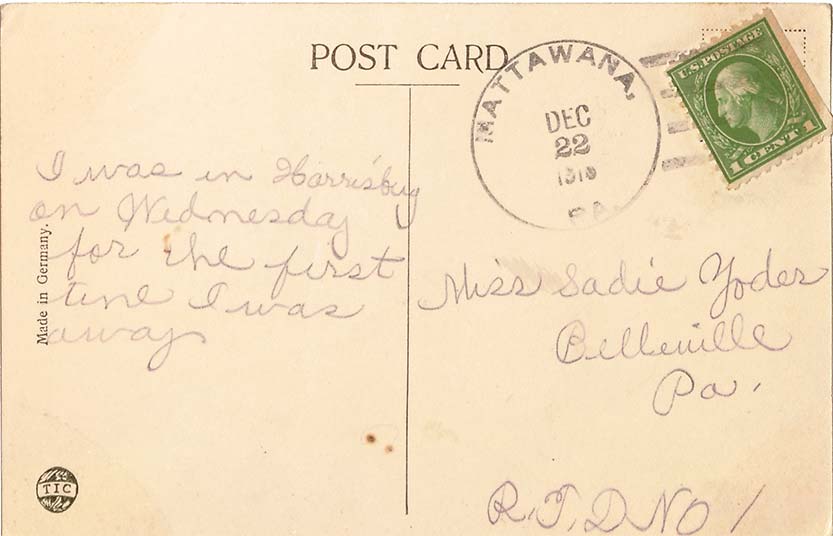 POST CARD
MATTAWANA,
DEC
22
PA.
U.S. POSTAGE
1 CENT 1
I was in Harrisbug
on Wednesday
for the first
time I was
away
Made in Germany.
Miss Sadie Yoder
Belleville
Pa.
R.F.D NO 1
TIC